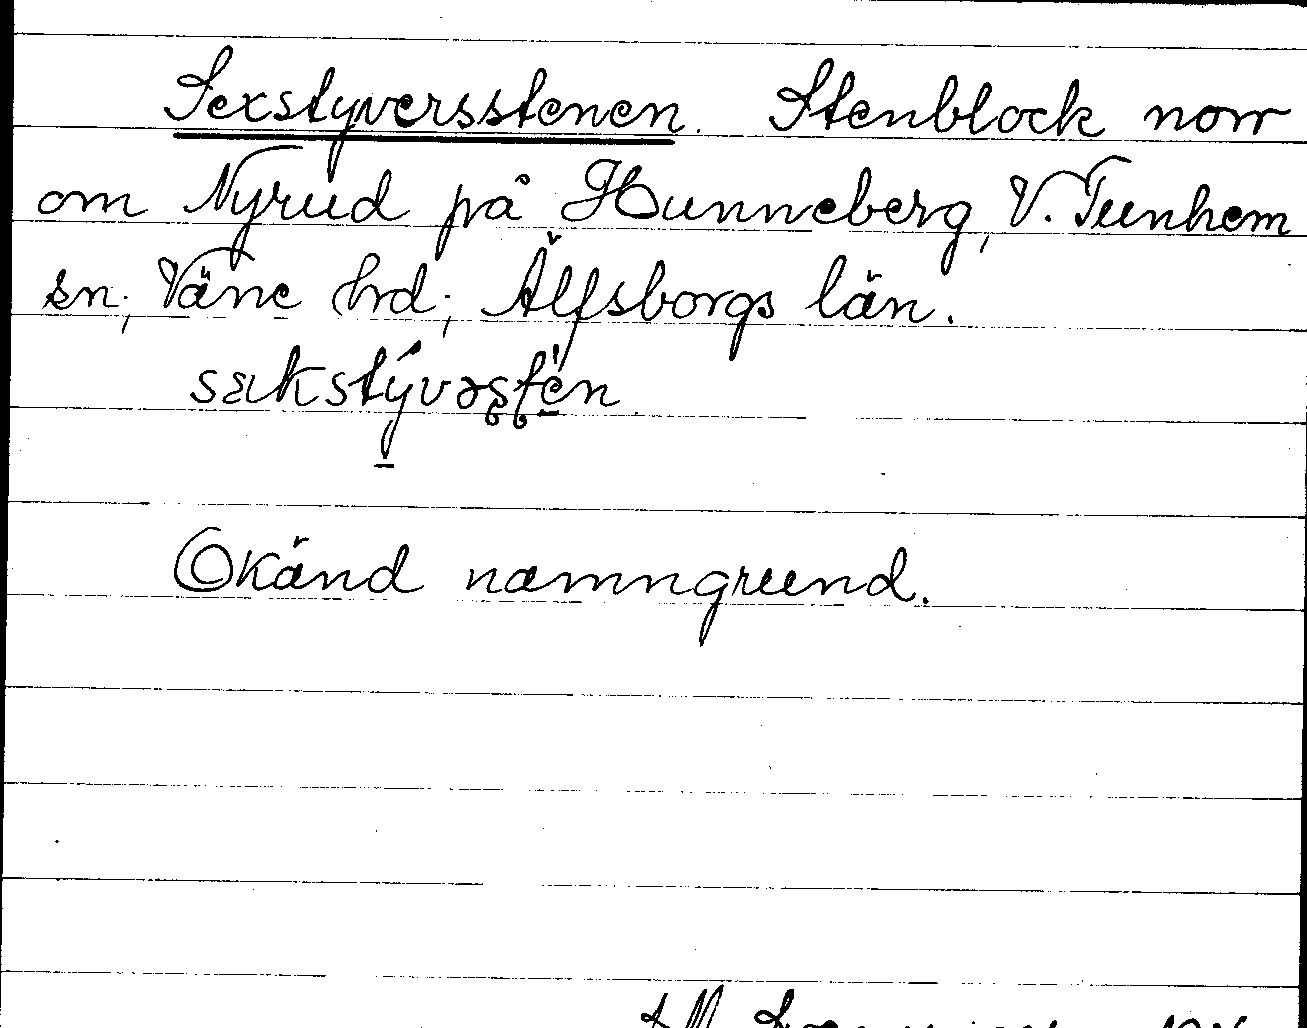 Sexstyversstenen. Stenblock norr
om Nyrud på Hunneberg, V. Tunhem
sn; Väne hrd; Älfsborgs län.
sækstývəʂʈe̍n
Okänd namngrund.